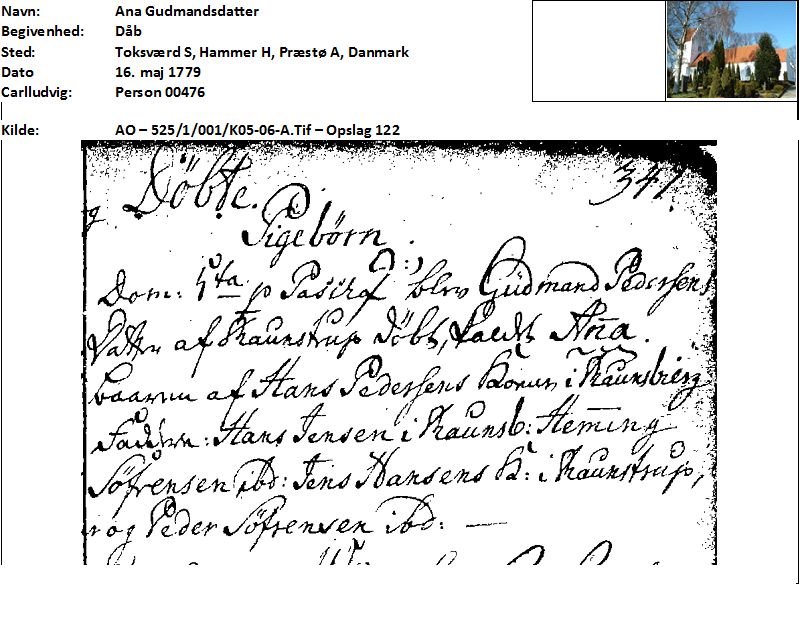 Navn: Ana Gudmandsdatter
Begivenhed: Dåb
Sted: Toksværd S, Hammer H, Præstø A, Danmark
Dato 16. maj 1779
Carlludvig: Person 00476
Kilde: AO – 525/1/001/K05-06-A.Tif – Opslag 122
341.
Döbte.
Pigebörn.
Dom: 5ta p Pasch blev Gudmand Pedersens
Datter af Skaunstrup Döbt, kaldt Ana.
baaren af Hans Pedersens Konun i Skaunsbierg
Fadder: Hans Jensen i Skaunsb: Heming
Söfrensen ibd: Jens Hansens K: i Skaunstrup,
og Peder Söfrensen ibd: